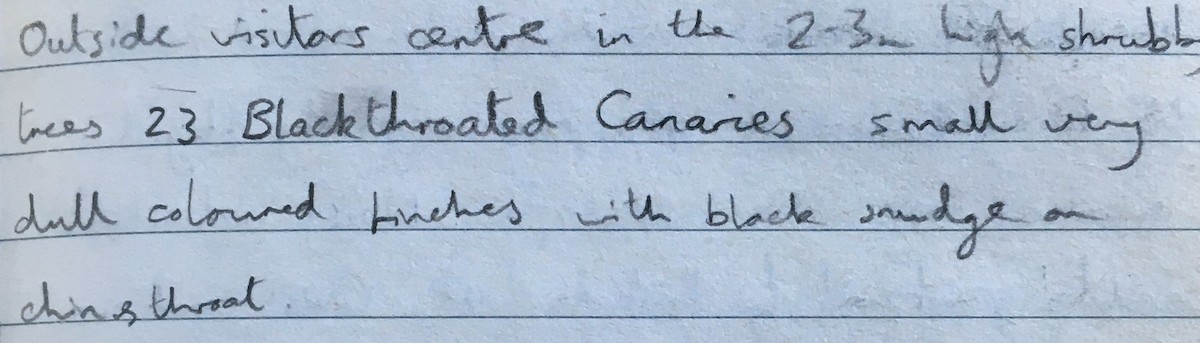 Outside visitors centre in the 2-3m high shrubby
trees 23 Blackthroated Canaries small very
dull coloured finches with black smudge on
chin & throat.